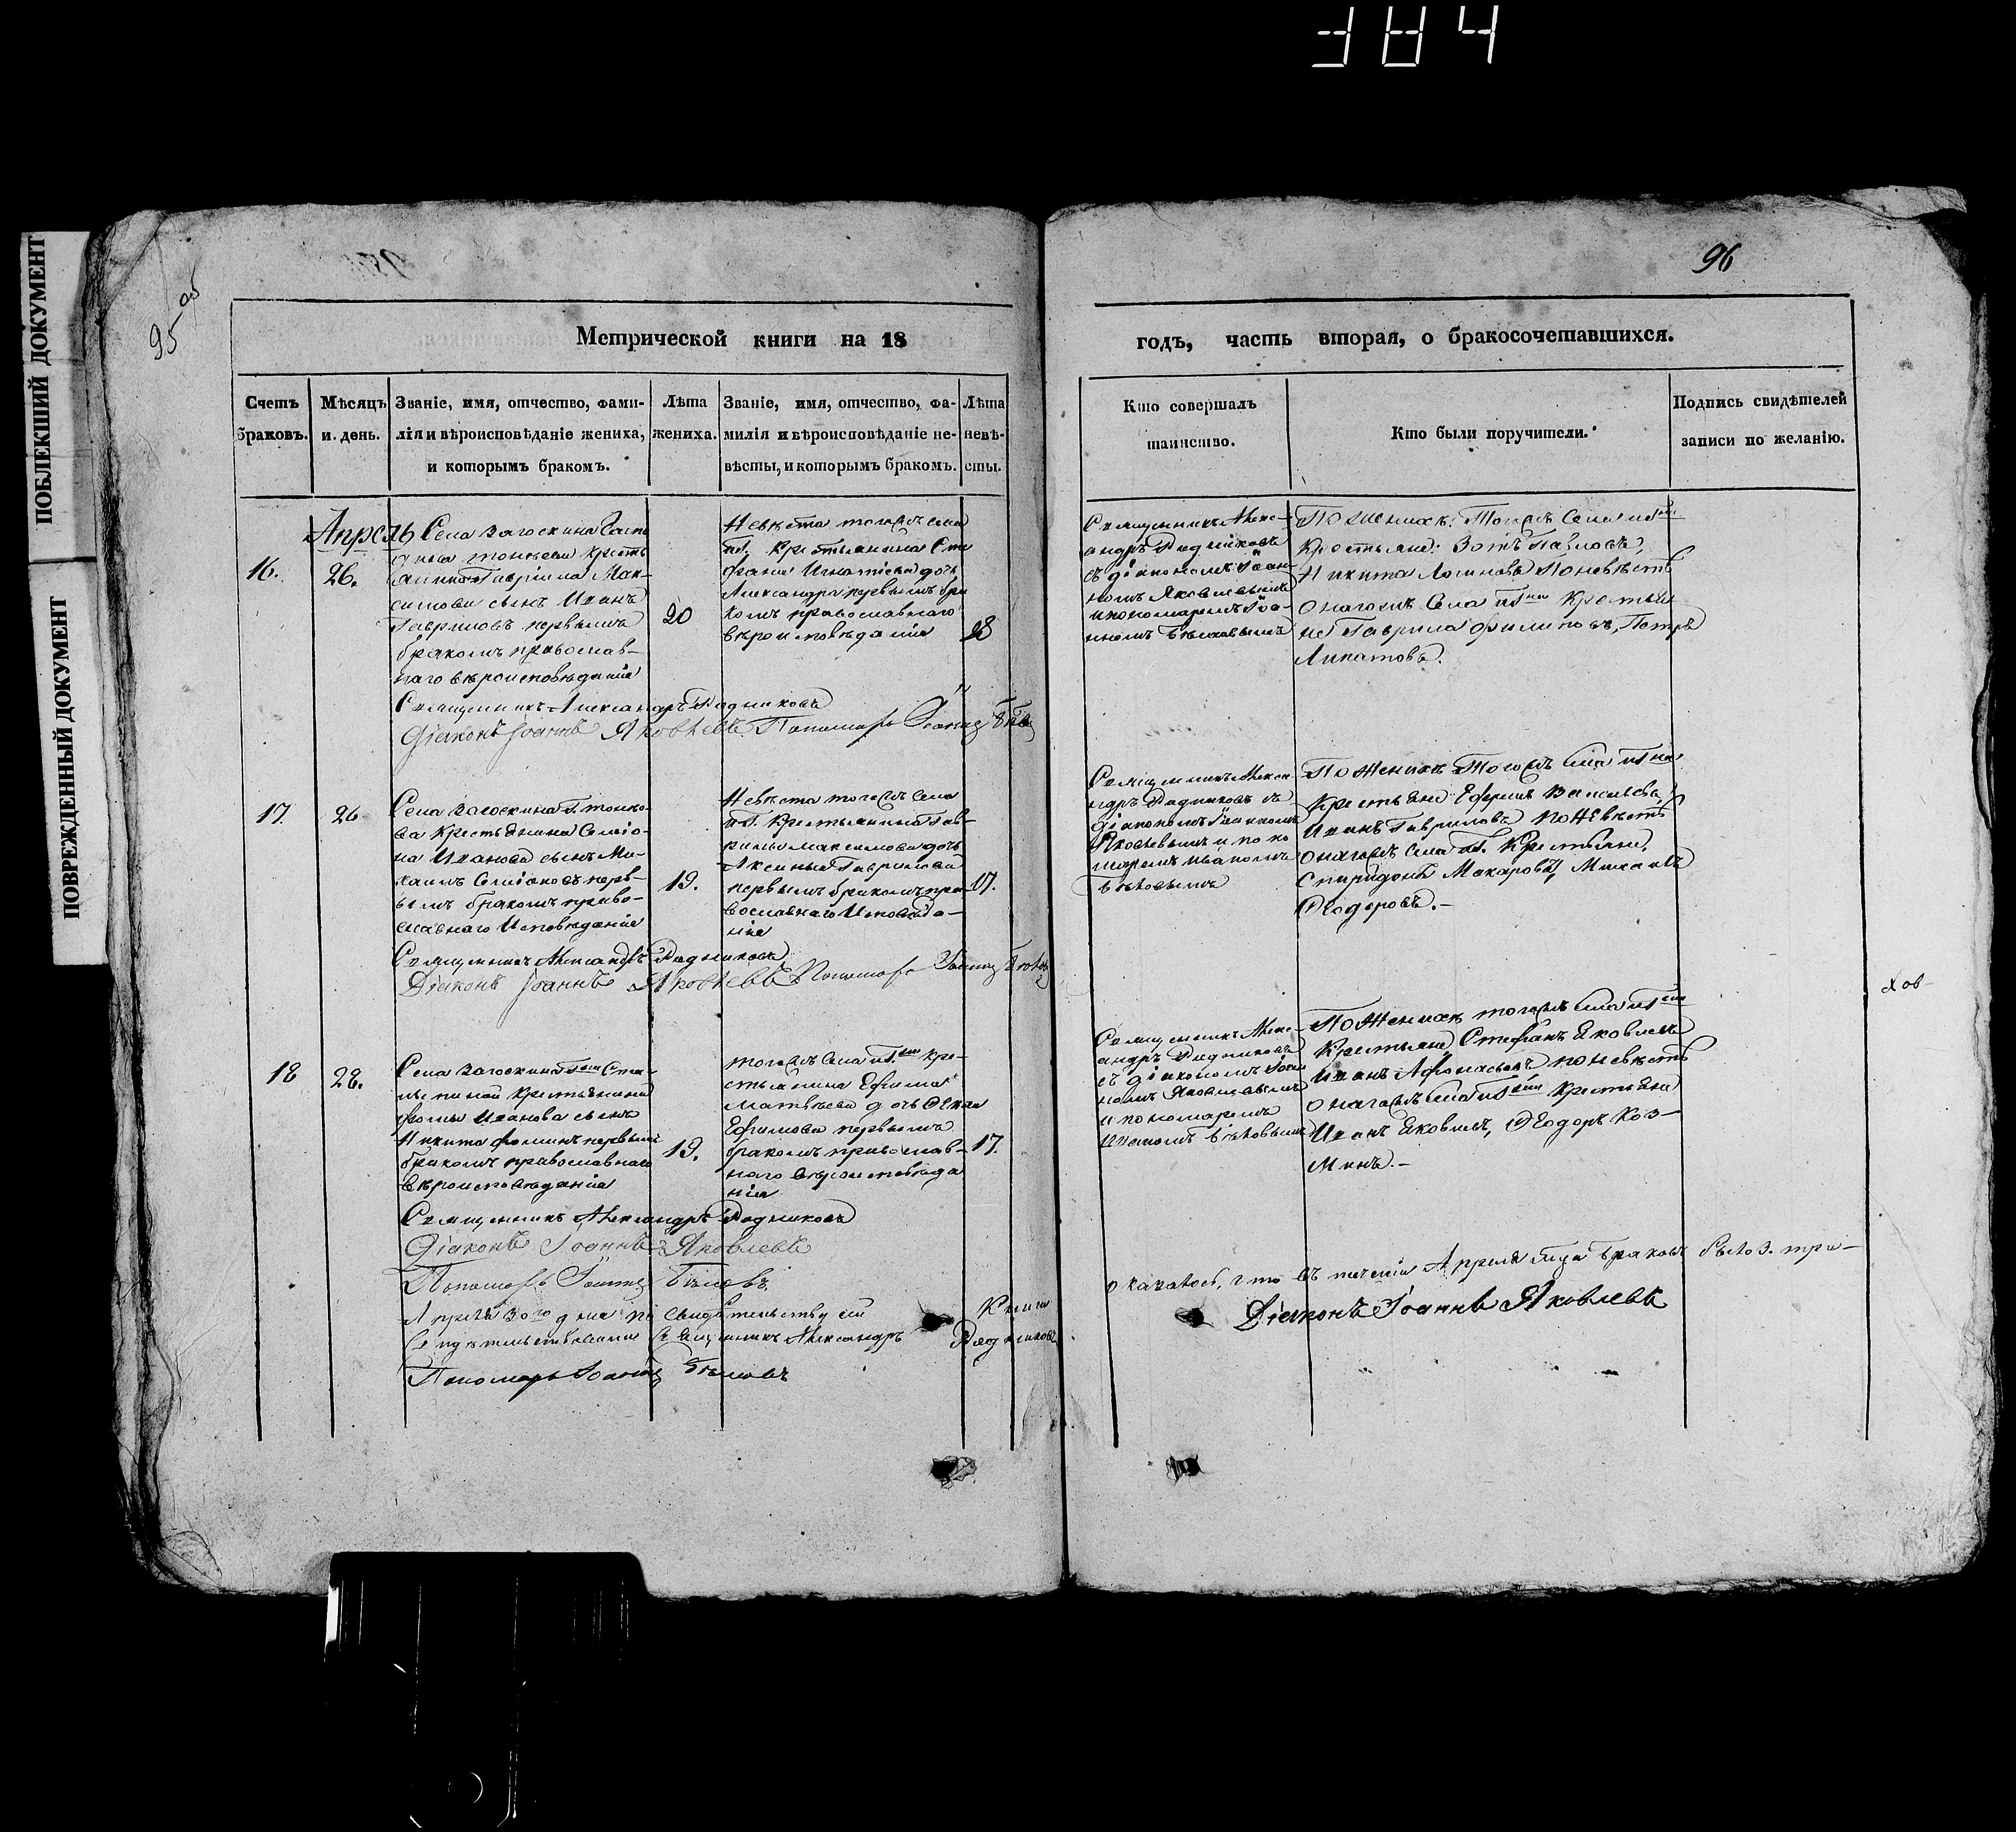 384
ПОБЛЕКШИЙ ДОКУМЕНТ
ПОВРЕЖДЕННЫЙ ДОКУМЕНТ
95 об
96
Метрической книги на 18
Счетъ браковъ.
Мѣсяцъ и день.
Званіе, имя, отчество, фами-
лія и вѣроисповѣданіе жениха,
и которымъ бракомъ.
Лѣта
жениха.
Званіе, имя, отчество, фа-
милія и вѣроисповѣданіе не-
вѣсты, и которымъ бракомъ.
Лѣта
невѣ-
сты.
16.
26.
Села Загоскина
Гаврила Мак-
симова сынъ Иванъ
Гавриловъ первымъ
бракомъ православ-
наго вѣроисповѣданія
20
Невѣста тогожъ села
Крестьянина Сте
фана Игнатіева дочь
Александра первымъ бра
комъ православнаго
вѣроисповѣданія
18
Священникъ Александръ Радниковъ
Діаконъ Іоаннъ Яковлевъ Пономарь Іоаннъ
17.
26
Села Загоскина
ва Крестьянина Семіо-
на Иванова сынъ Ми-
хаилъ Семіоновъ перв-
ымъ бракомъ право-
славнаго Исповѣданія
19.
Невѣста тогожъ Села
Крестьянина Гав-
рилы Максимова дочь
Аксинья Гаврилова
первымъ бракомъ пра
вославнаго Исповѣда-
нія
17.
Священникъ Александръ Радниковъ
Діаконъ Іоаннъ Яковлевъ Пономарь Іоаннъ
18
28.
Села Загоскина
Крестьянина
Фомы Иванова сынъ
Никита Фоминъ первымъ
бракомъ православнаго
вѣроисповѣданія
19.
тогожъ Села Кре-
стьянина Ефима
Матвѣева дочь
Ефимова первымъ
бракомъ православ-
наго вѣроисповѣда
нія
17.
Священникъ Александръ Радниковъ
Діаконъ Іоаннъ Яковлевъ
Пономарь Іоаннъ Бѣловъ
Апреля 30го дня по свидѣтельству сей Книги
Священникъ Александръ Радниковъ
Пономарь Іоаннъ Бѣловъ
годъ, часть вторая, о бракосочетавшихся.
Кто совершалъ
таинство.
Кто были поручители.
Подпись свидѣтелей
записи по желанію.
Священникъ Алекс-
андръ Радниковъ
съ діакономъ Іоан-
номъ Яковлевымъ
и пономаремъ Іоа-
нномъ
По женихѣ: Тогожъ Села
Крестьяне: Зотъ Павловъ,
Никита Логиновъ По невѣстѣ
онагожъ Села Крестья
не Гаврила Филиповъ, Петръ
Липатовъ.
Священникъ Алекса
ндръ Радниковъ съ
діакономъ Іоанномъ
Яковлевымъ и поно
маремъ Иваномъ
По Женихѣ Тогожъ Села
Крестьяне Ефимъ Васильевъ,
Иванъ Гавриловъ по Невѣстѣ
онагожъ Села Крестьяне,
Спиридонъ Макаровъ, Михаилъ
Ѳеодоровъ.-
Священникъ Алекс-
андръ Радниковъ
съ діакономъ Іоан
номъ Яковлевымъ
и пономаремъ
Иваномъ
По Женихѣ тогожъ Села
Крестьяне Стефанъ Яковлевъ
Иванъ Афонасьевъ по невѣстѣ
онагожъ Села Крестьяне
Иванъ Яковлевъ, Ѳеодоръ Коз-
минъ.-
оказалось, что въ теченіи Апреля мца браковъ было 3. три-
Діаконъ Іоаннъ Яковлевъ